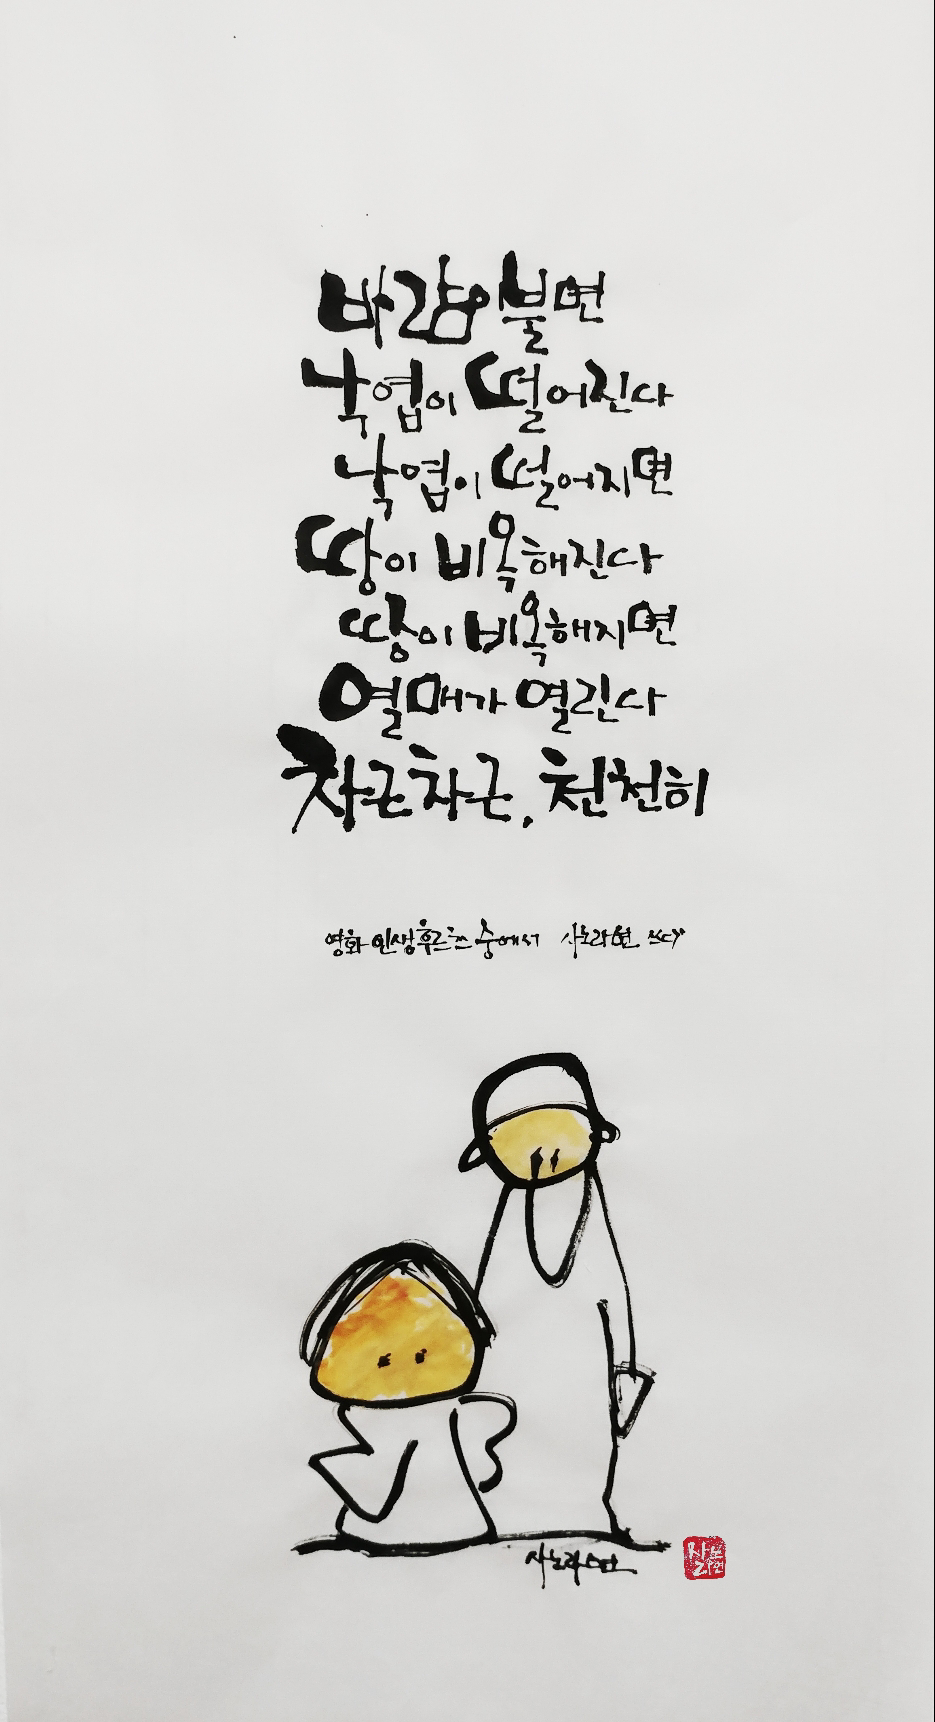 바람이 불면
낙엽이 떨어진다
낙엽이 떨어지면
땅이 비옥해진다
땅이 비옥해지면
열매가 열린다
차근차근, 천천히
영화 인생후르츠 중에서 사노라면 쓰다
사노라면